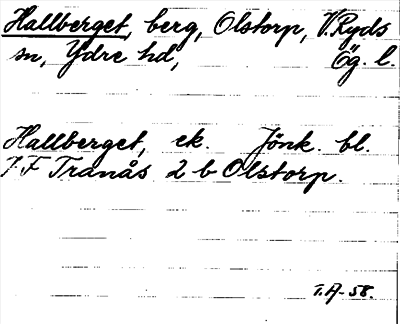 Hallberget, berg, Olstorp, V. Ryds
sn, Ydre hd, Ög. l.
Hallberget, ek. Jönk. bl.
7F Tranås 2 b Olstorp.
T.A-58.